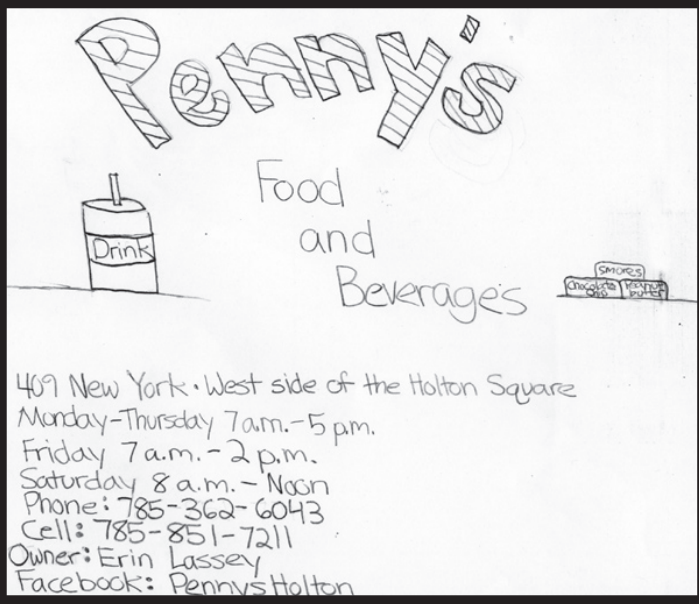 Penny's
Food
and
Beverages
Drink
Smores
Chocolate Chip
Peanut butter
409 New York • West side of the Holton Square
Monday-Thursday 7 a.m.-5 p.m.
Friday 7 a.m.-2 p.m.
Saturday 8 a.m.-Noon
Phone: 785-362-6043
Cell: 785-851-7211
Owner: Erin Lassey
Facebook: PennysHolton